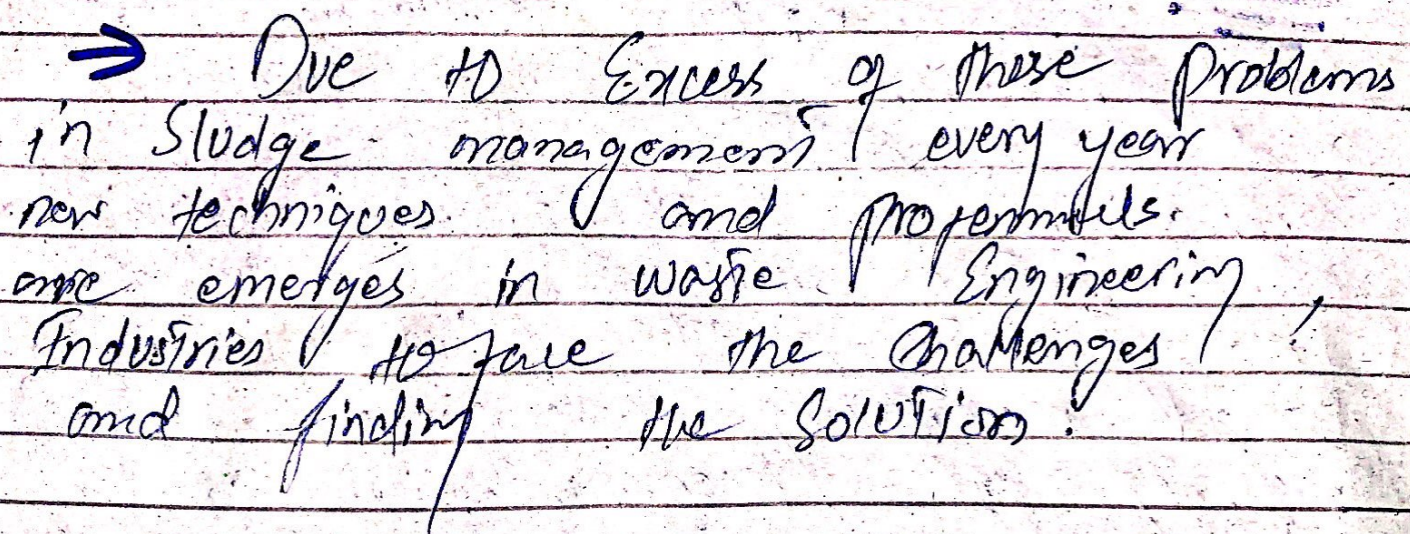 → Due to Excess of these Problems
in Sludge management every year
new techniques and
are emerges in waste Engineering
Industries to face the Challenges
and finding the Solution.